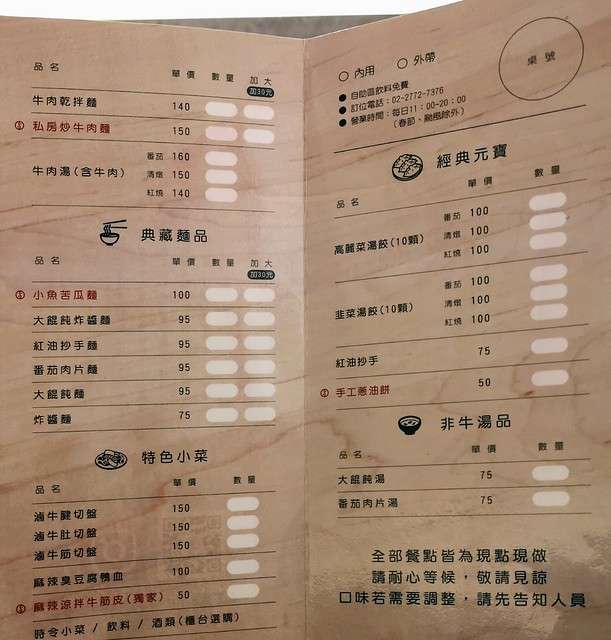 品名 單價 數量 加大
加30元
牛肉乾拌麵 140
私房炒牛肉麵 150
牛肉湯(含牛肉) 番茄 160
清燉 150
紅燒 140
典藏麵品
品名 單價 數量 加大
加30元
小魚苦瓜麵 100
大餛飩炸醬麵 95
紅油抄手麵 95
番茄肉片麵 95
大餛飩麵 95
炸醬麵 75
特色小菜
品名 單價 數量
滷牛腱切盤 150
滷牛肚切盤 150
滷牛筋切盤 150
麻辣臭豆腐鴨血 100
麻辣涼拌牛筋皮(獨家) 50
時令小菜 / 飲料 / 酒類(櫃台選購)
內用 外帶
桌號
自助區飲料免費
訂位電話：02-2772-7376
營業時間：每日11：00-20：00
(春節、颱風除外)
經典元寶
品名 單價 數量
高麗菜湯餃(10顆) 番茄 100
清燉 100
紅燒 100
韭菜湯餃(10顆) 番茄 100
清燉 100
紅燒 100
紅油抄手 75
手工蔥油餅 50
非牛湯品
品名 單價 數量
大餛飩湯 75
番茄肉片湯 75
全部餐點皆為現點現做
請耐心等候，敬請見諒
口味若需要調整，請先告知人員